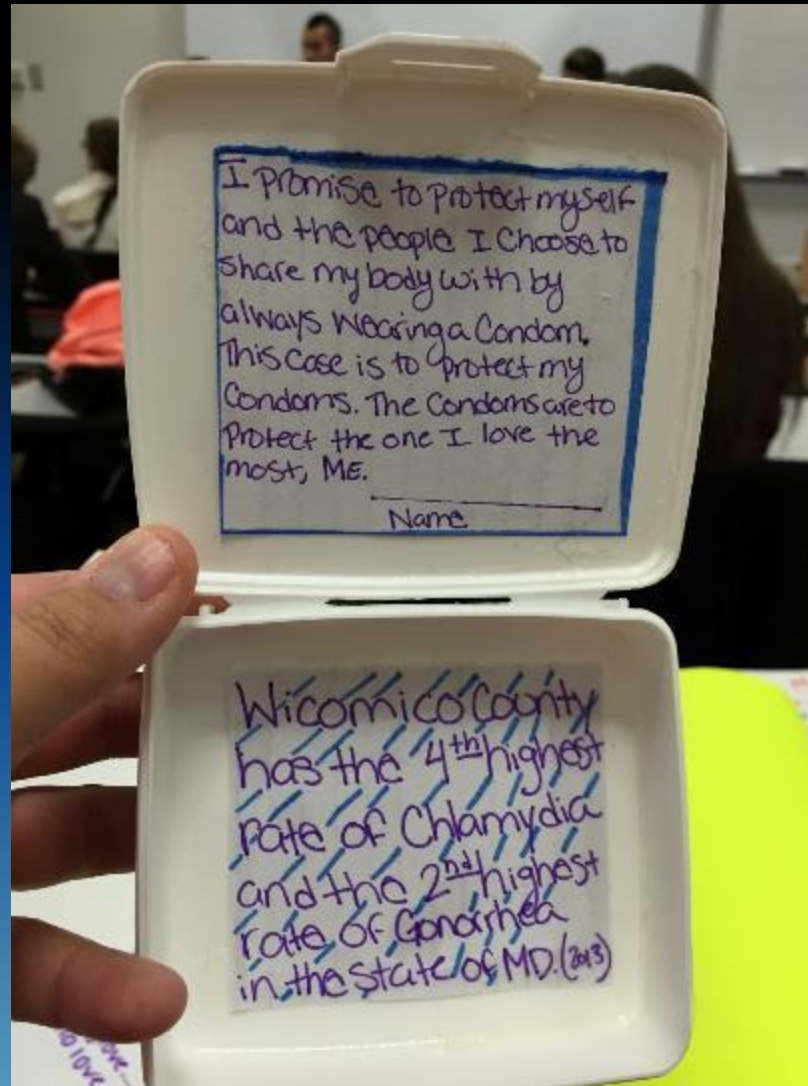 I promise to protect myself
and the people I Choose to
share my body with by
always Wearing a Condom.
This case is to protect my
Condoms. The Condoms are to
Protect the one I love the
most, ME.
Name
Wicomico County
has the 4th highest
rate of Chlamydia
and the 2nd highest
rate of Gonorrhea
in the state of MD. (2013)
love